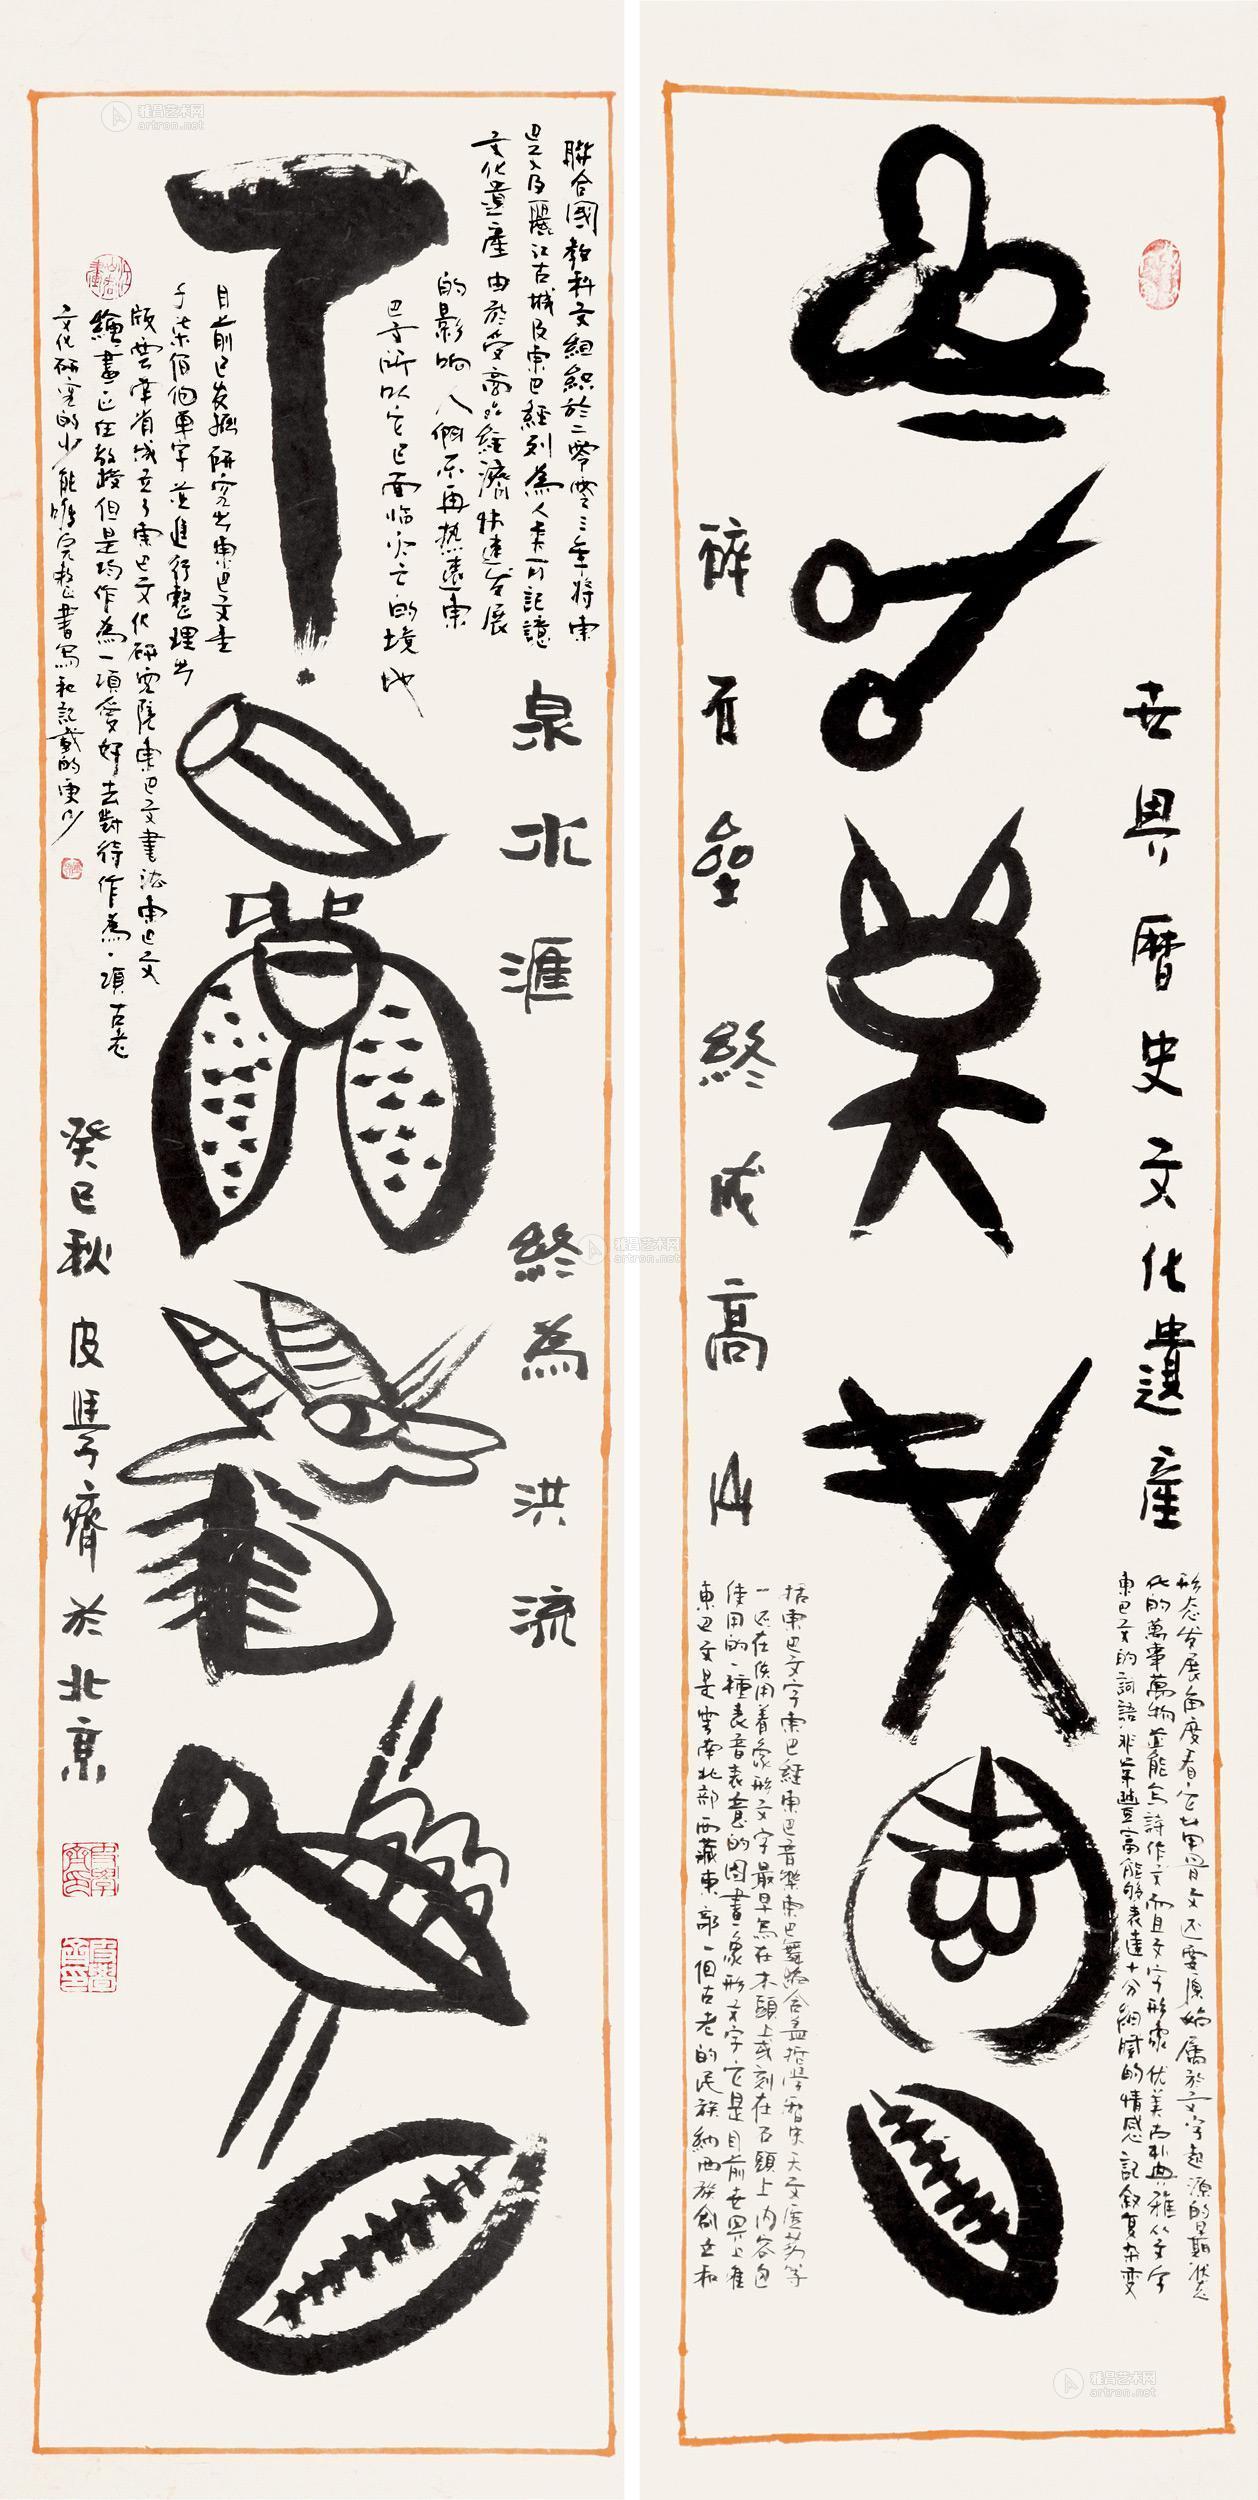 世界曆史文化遺產
形态发展角度看它比甲骨文还要原始属於文字起源的早期
化的萬事萬物並能写詩作文而且文字形象优美古朴典雅从文字
東巴文的詞語非常豐富能够表達十分細膩的情感記敘复杂变
碎石壘終成高山
括東巴文字東巴經東巴音樂東巴舞蹈
一直在使用着象形文字最早寫在木頭上或刻在石頭上内容包
使用的一種表音表意的圖畫象形文字它是目前世界上唯
東巴文是雲南北部西藏東部一個古老的民族納西族創立和
聯合國教科文組織於二零零三年將東
巴文及麗江古城及東巴經列為人类可記憶
文化遺產由於受商品經濟快速发展
的影响人們不再热衷東
巴文所以它已面临灭亡的境地
泉水滙終為洪流
目前已发掘研究出東巴文
千柒佰個單字並進行整理出
版雲南省成立了東巴文化研究院東巴文書法東巴文
繪畫正在教授但是均作為一項愛好去對待作為一項古老
文化研究的少能夠完整書寫和記載的更少
癸巳秋皮學齊於北京
雅昌艺术网
artron.net
雅昌艺术网
artron.net
雅昌艺术网
artron.net